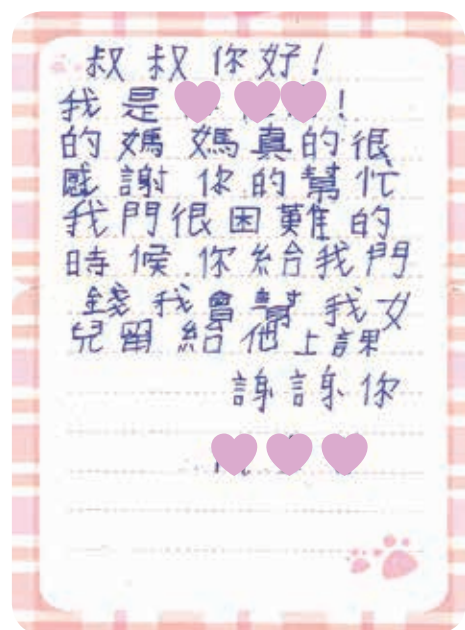 叔叔你好!
我是!
的媽媽真的很
感謝你的幫忙
我門很困難的
時候.你給我門
錢我會幫我女
兒留給他上課
謝謝你